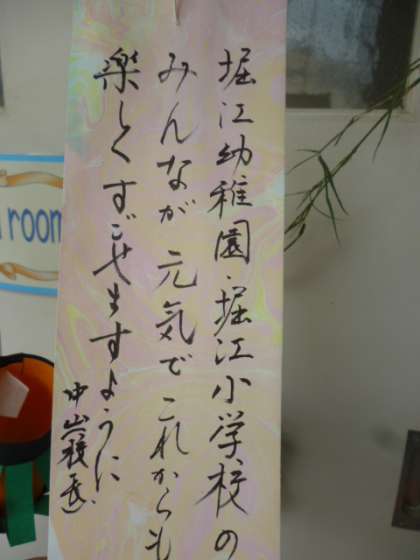 堀江幼稚園・堀江小学校の
みんなが元気でこれからも
楽しくすごせますように
中山(校長)
room